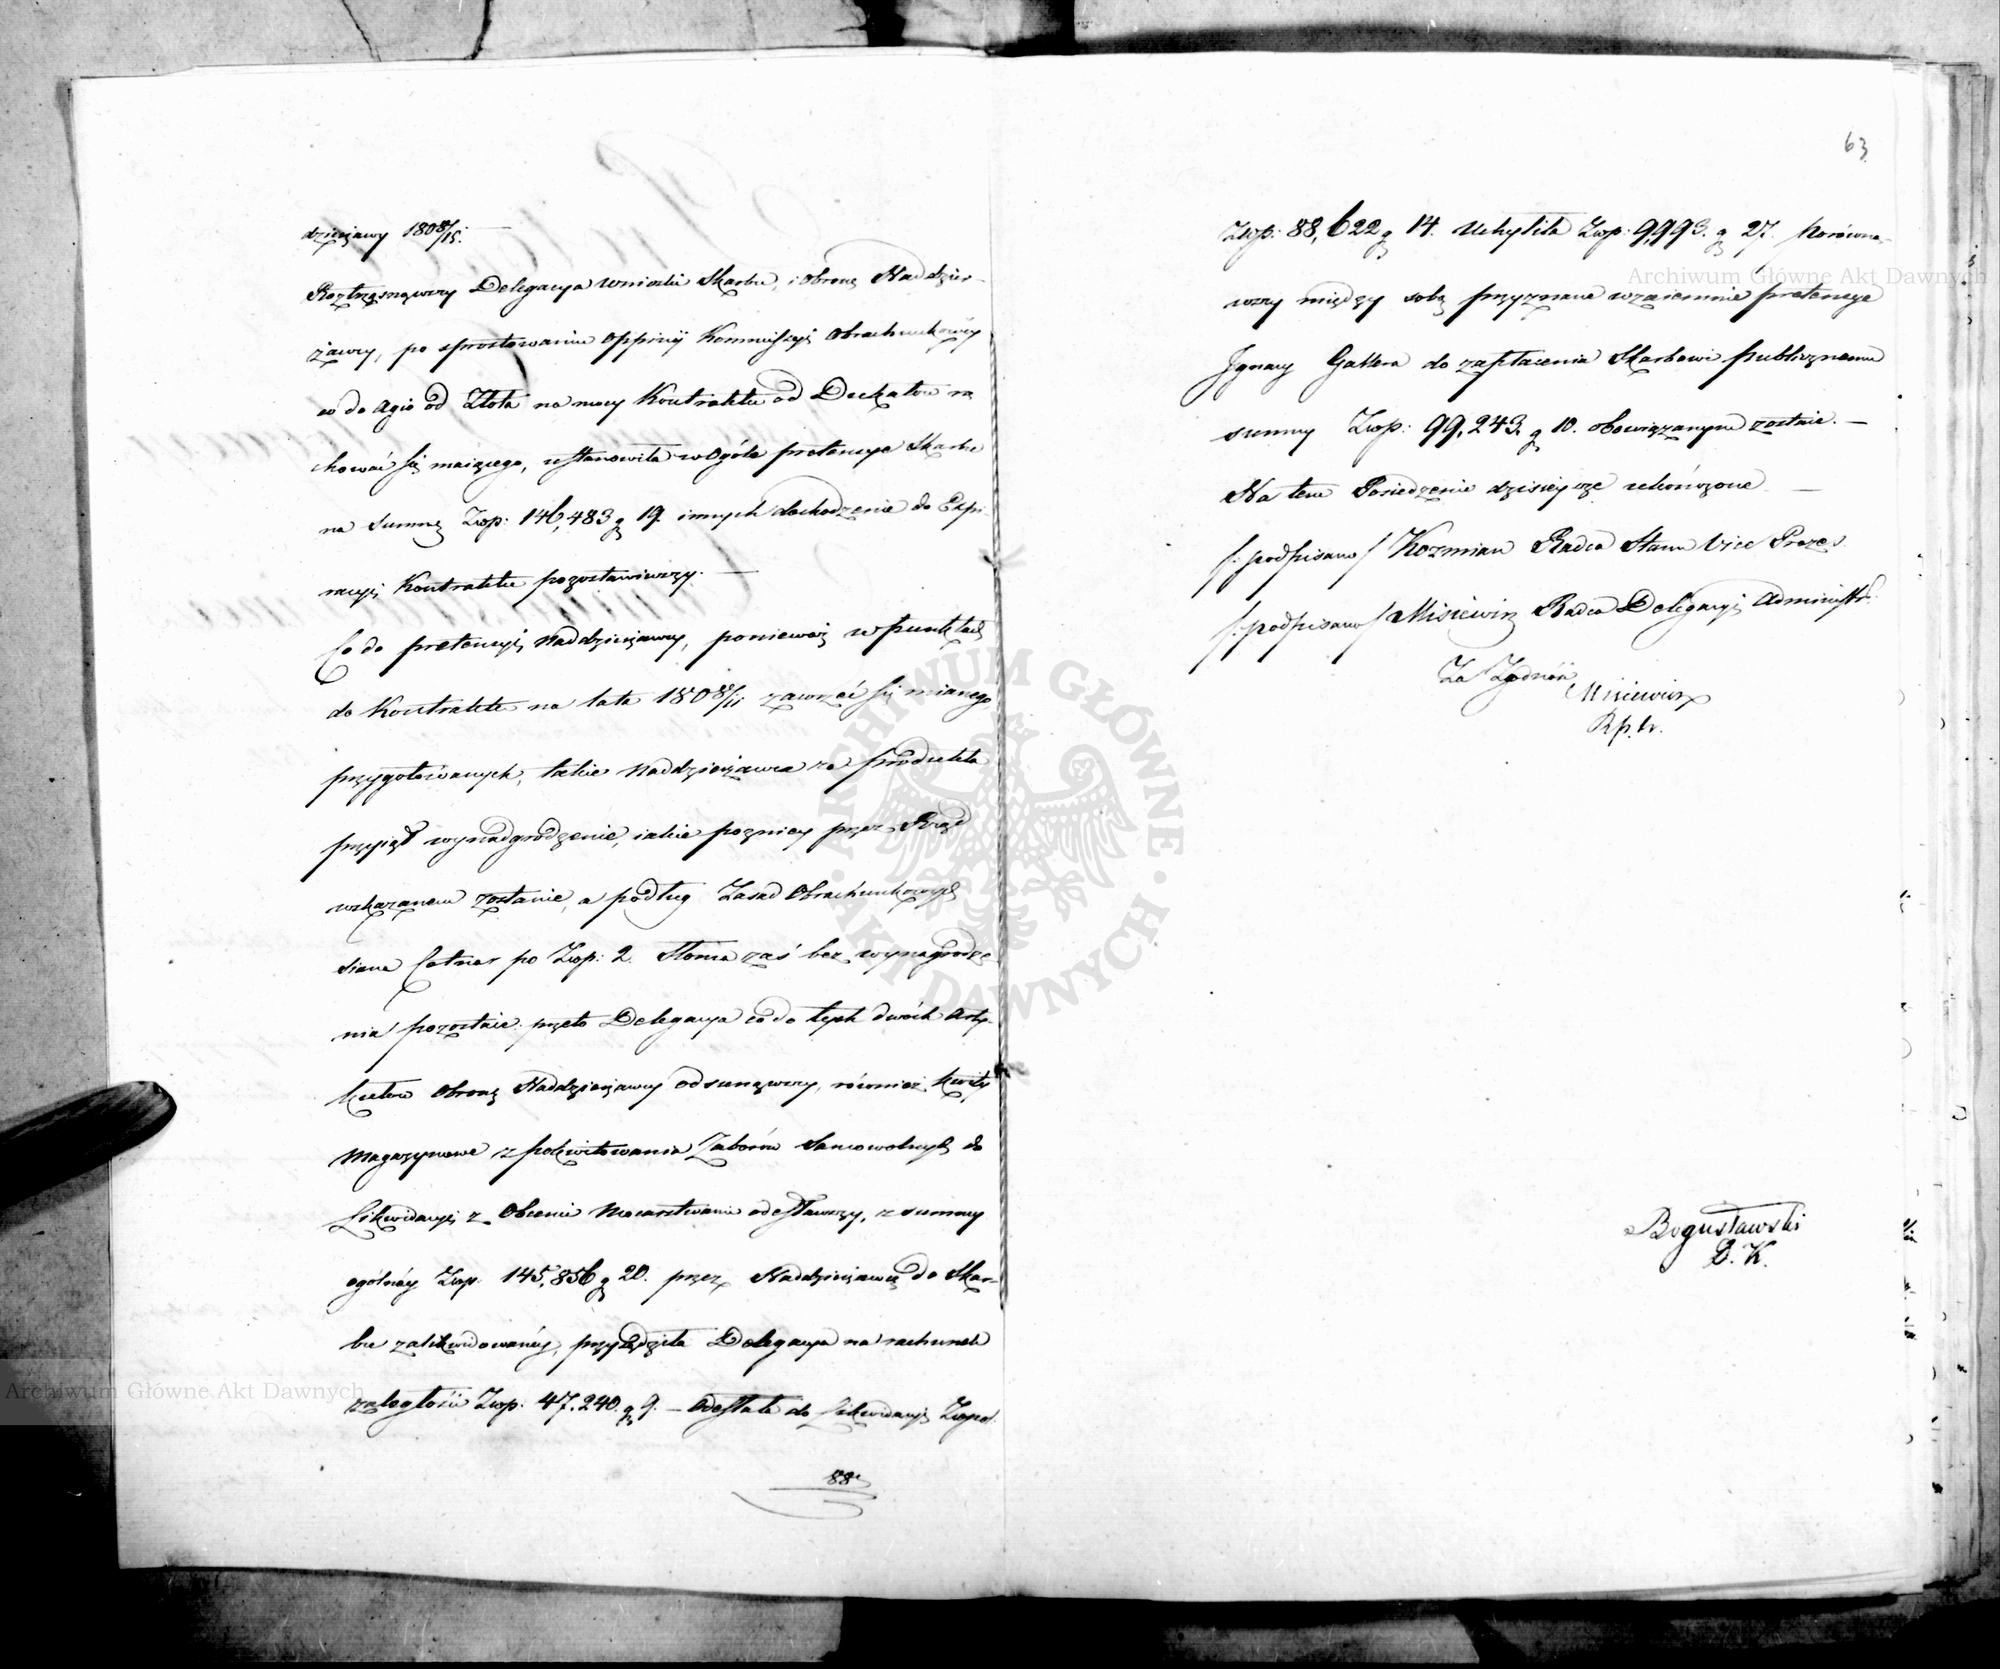 dzierżawy 1808/15. —
Roztrząsnąwszy Delegacya wnioski Skarbu, i obronę Naddzier-
żawcy, po sprostowaniu Oppinij Kommissyi Obrachunkowey
co do Agio od Złota na mocy Kontraktu od Dukatów ra
chować się maiącego, ustanowiła w Ogóle pretensye Skarbu
na Summę Złtp: 146,483 g 19. innych dochodzenie do Expi-
racyi Kontraktu pozostawiwszy. —
Co do pretensyi Naddzierżawcy, ponieważ w punktach
do Kontraktu na lata 1808/11 zawrzeć się mianego
przygotowanych, takie Naddzierżawca za produkta
przyiął wynadgrodzenie, iakie pozniey przez Rząd
wskazanem zostanie, a podług Zasad Obrachunkowych
siana Cetnar po Złtp: 2. Słoma zaś bez wynagrodze
nia pozostaie. przeto Delegacya co do tych dwóch Arty-
kułów obronę Naddzierżawcy odsunąwszy, również kwity
Magazynowe z pokwitowania Zaborów samowolnych do
Likwidacyi z Obcemi Mocarstwami odesławszy, z summy
ogólnéy Złtp. 145,856 g 20. przez Naddzierżawcę do Skar-
bu zalikwidowanéy, przysądziła Delegacya na rachunek
zaległości Złtp. 47.240. g 9. — Odesłała do Likwidacyi Złtpol.
88,
63
Złtp: 88,622 g 14. Uchyliła Złtp: 9,993. g 27. Porówna-
wszy między sobą przyznane wzaiemnie pretensye
Ignacy Gattera do zapłacenia Skarbowi publicznemu
summy Złtp: 99,243. g 10. obowiązanym zostaie. —
Na tem Posiedzenie dzisieysze ukończone —
/: podpisano / Kozmian Radca Stanu Vice Prezes.
/: podpisano / Misiewicz Radca Delegacyi Administr:
Za Zgodność
Misiewicz
Bogusławski
S. K.
Archiwum Główne Akt Dawnych
Archiwum Główne Akt Dawnych
ARCHIWUM GŁÓWNE · AKT DAWNYCH ·